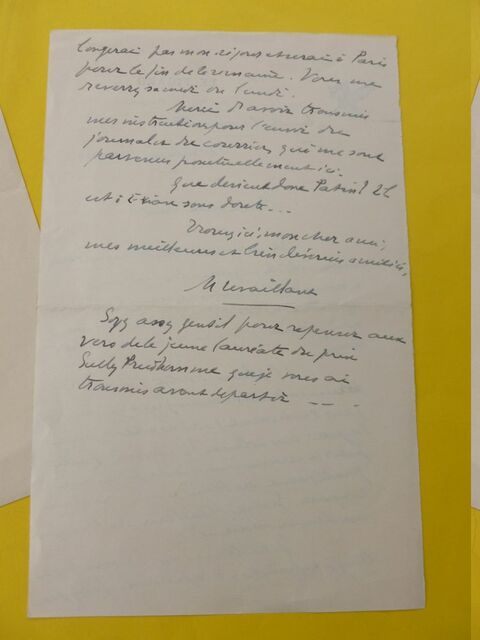 longerai pas mon séjour et serai à Paris
pour la fin de la semaine. Vous me
reverrez samedi ou lundi.
Merci d'avoir transmis
mes instructions pour l'envoi des
journaux du courrier, qui me sont
parvenus ponctuellement ici.
Que devient donc Patin? Il
est à sans doute...
Trouvez ici, mon cher ami,
mes meilleures et très amitiés,
M Levaillant
Soyez assez gentil pour repenser aux
vers de la jeune lauréate du prix
Sully Prudhomme que je vous ai
transmis avant de partir ---